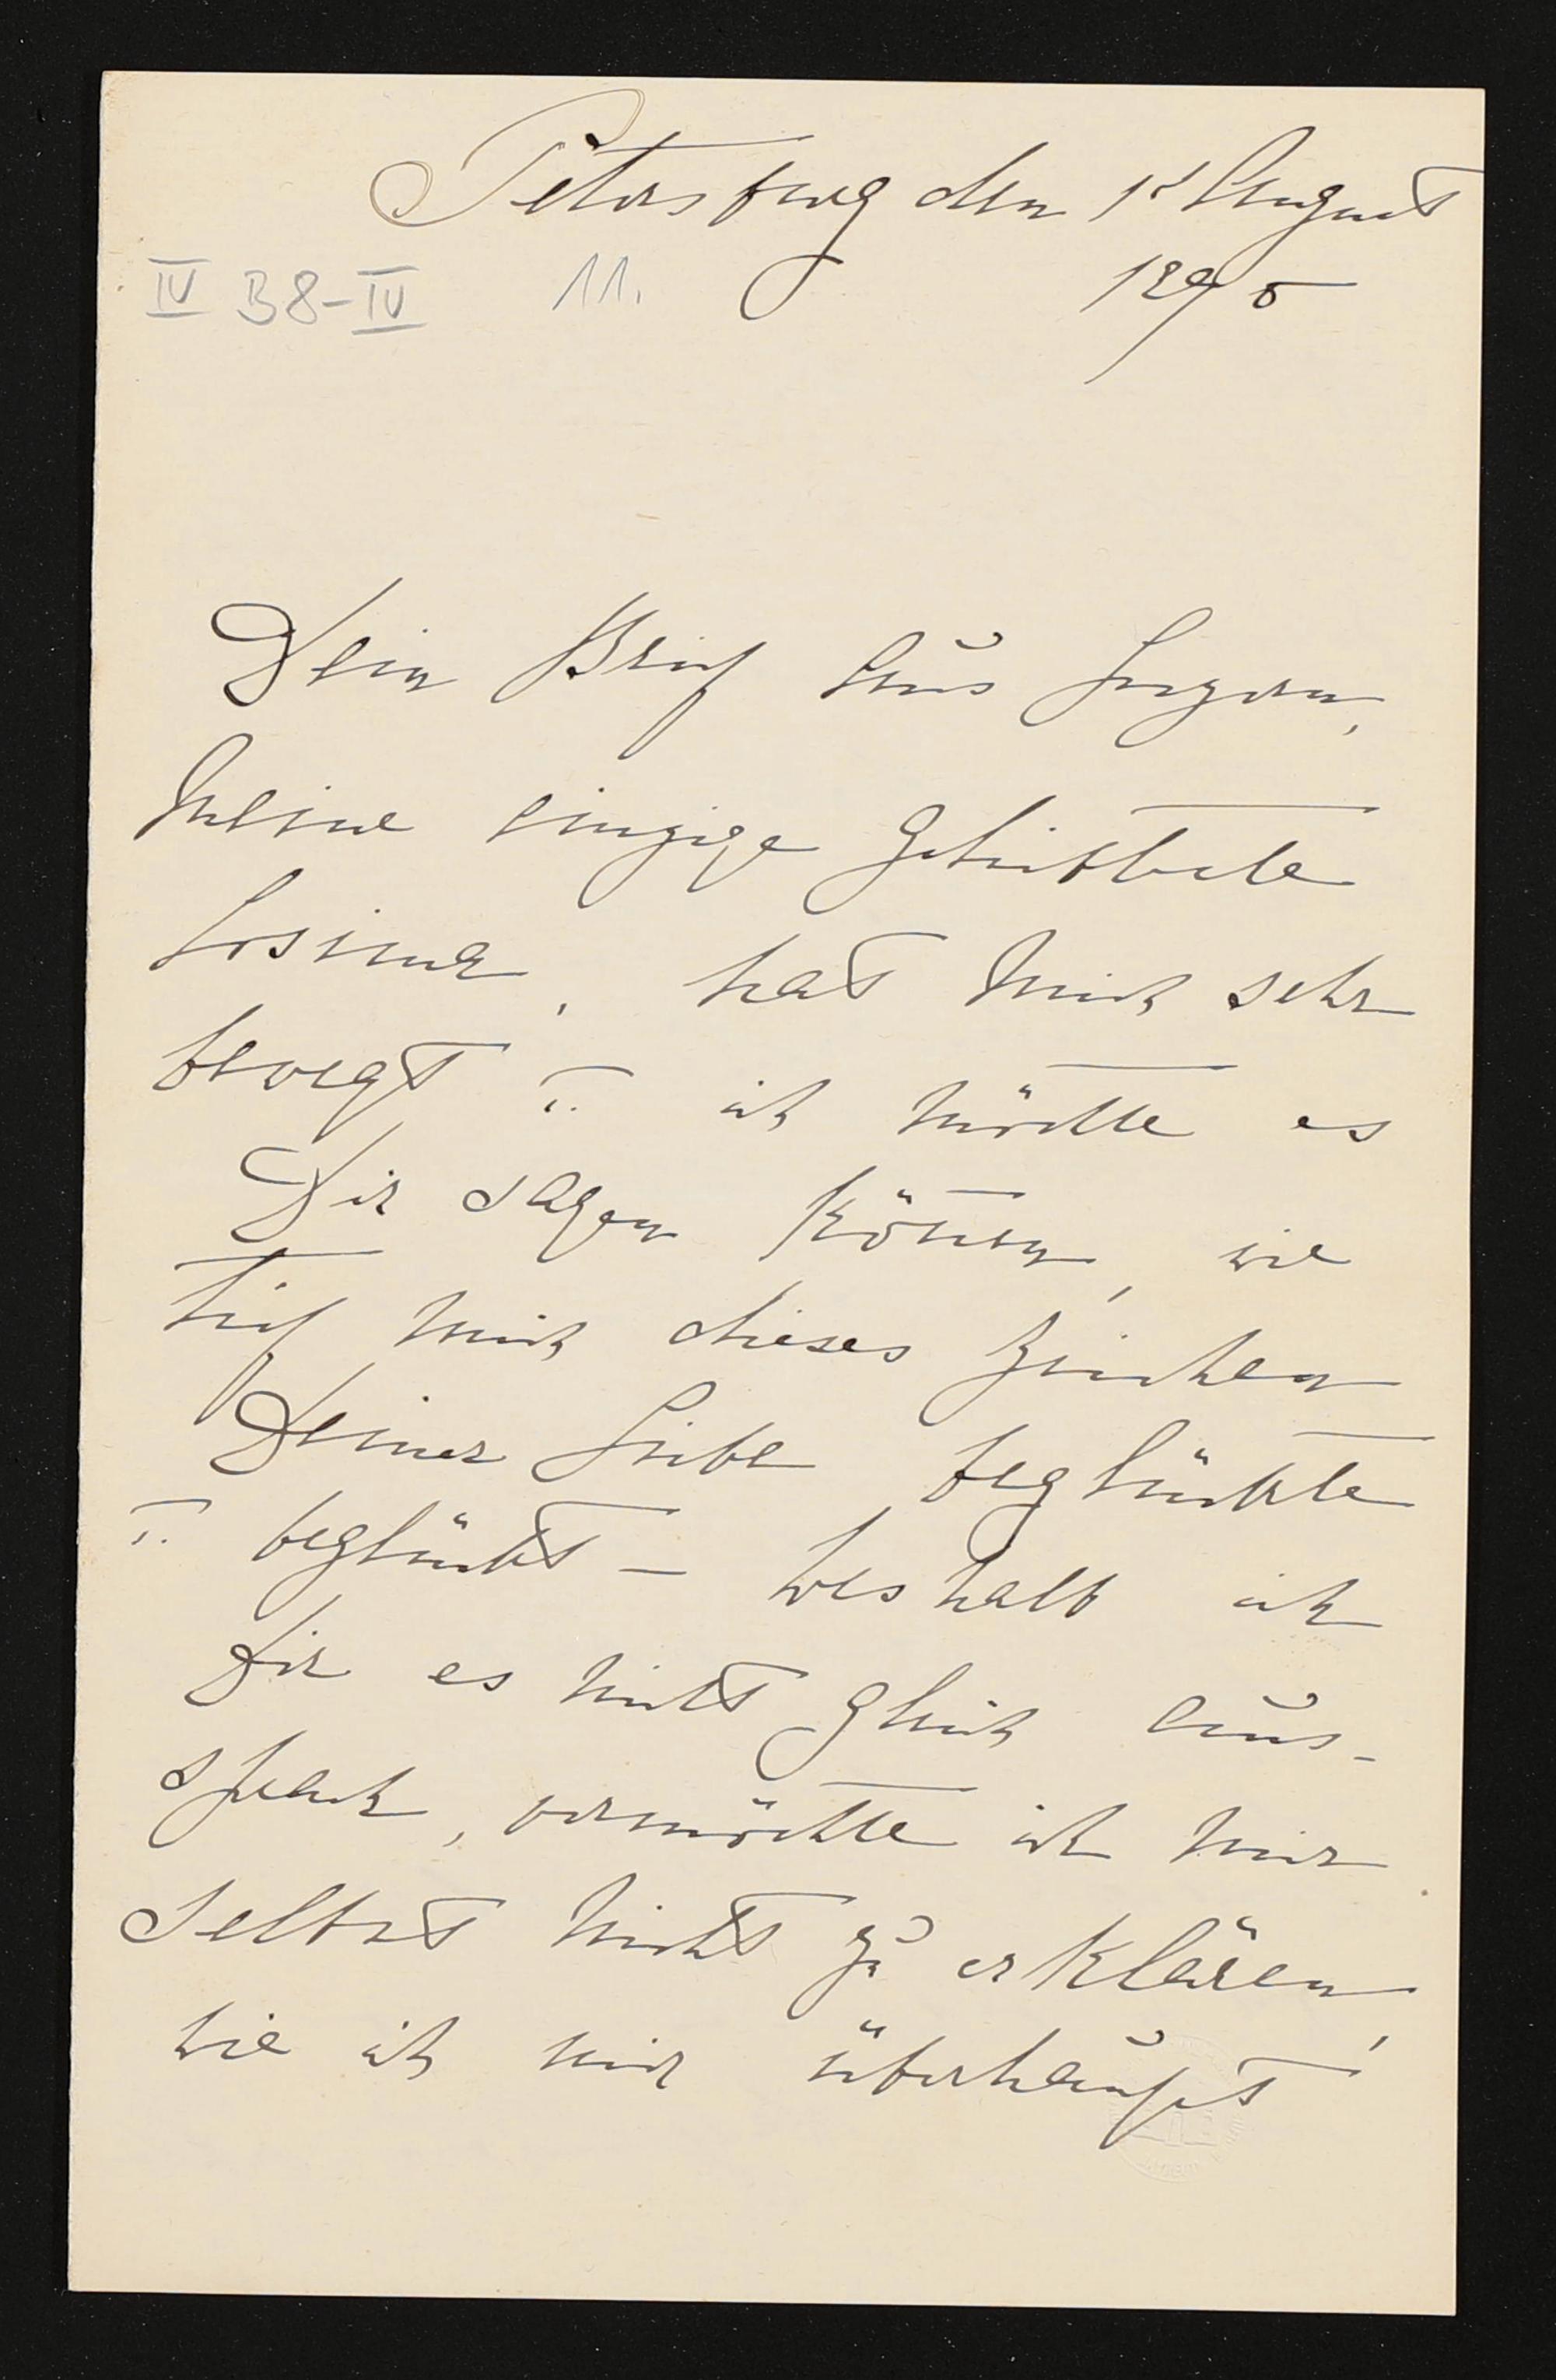 Petersburg den 1t August
IV B8-IV 11. 1895
Dein Brief aus Luzern,
meine einzige geliebteste
Cosima, hat mich sehr
bewegt u. ich möchte es
Dir sagen können, wie
tief mich dieses Zeichen
Deiner Liebe beglückte
u. beglückt – weshalb ich
Dir es nicht gleich aus-
sprach, vermöchte ich mir
selbst nicht zu erklären,
wie ich mir überhaupt